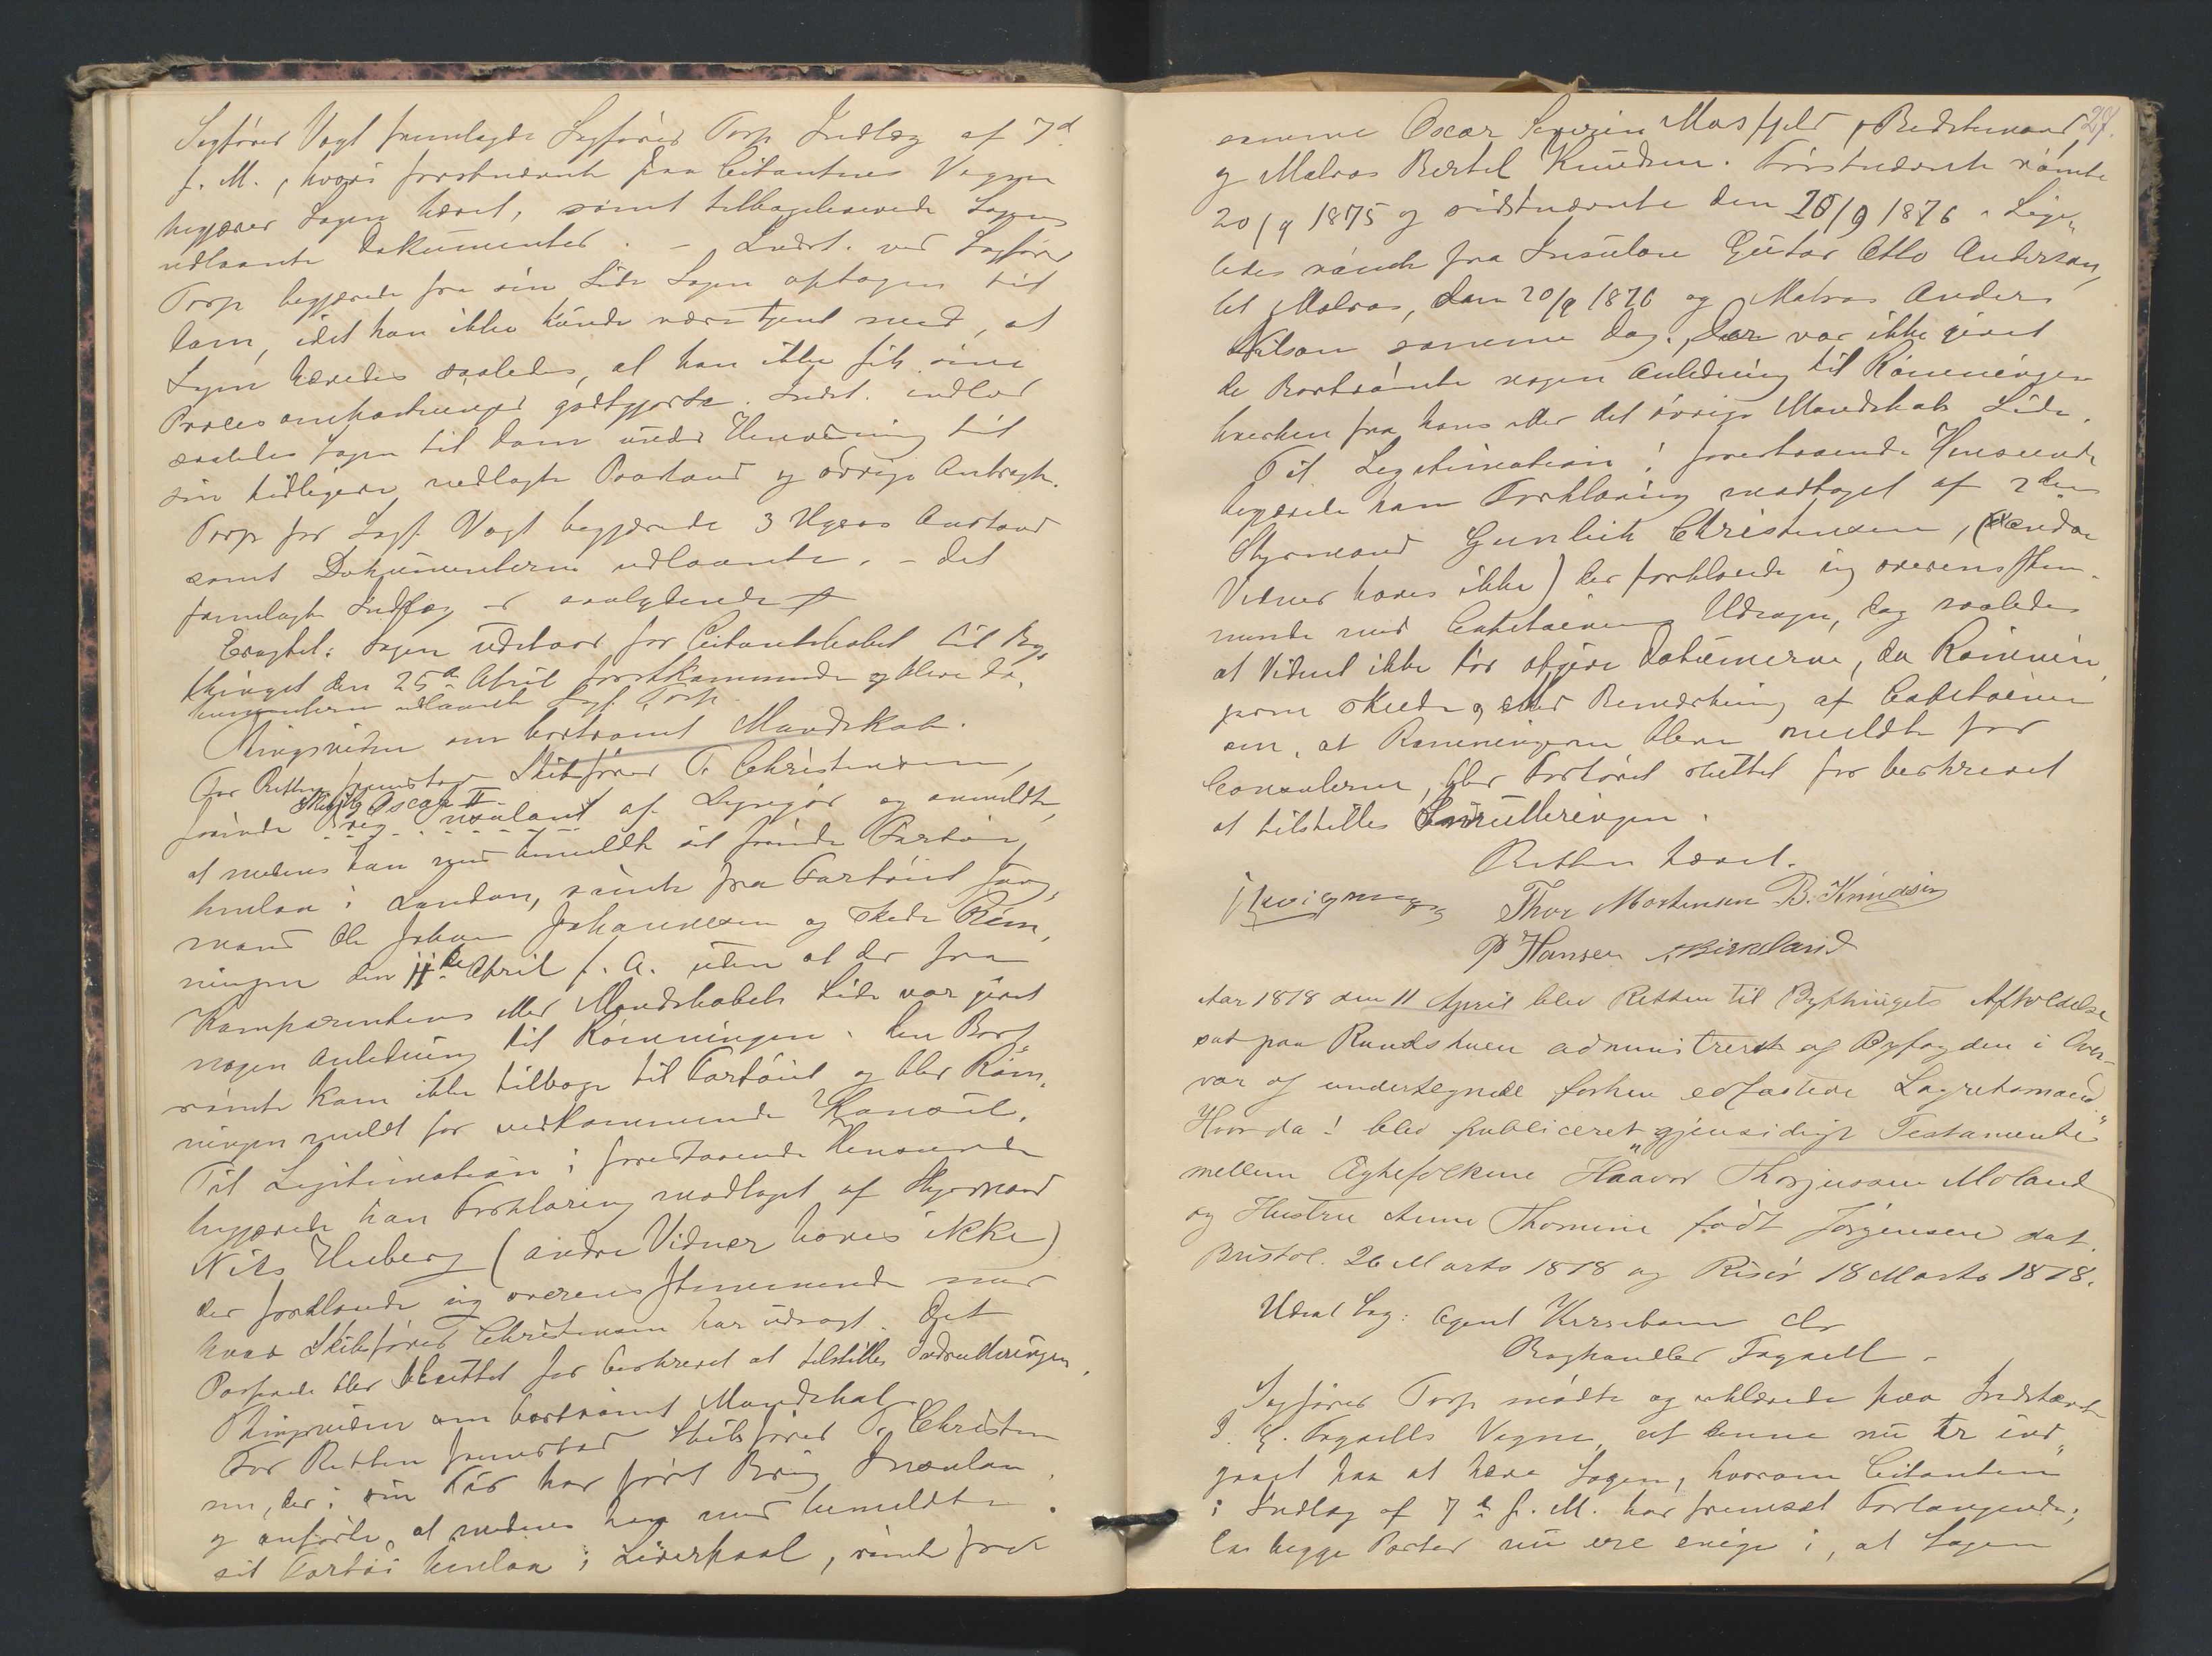 Sagfører Vogt fremlagde Sagfører Torp Indlæg af 7d
f. M., hvori førstnævnte paa Citantens Vegne
begjærer Sagen hævet, samt tilbageleverede Sagens
udlaante Dokumenter. – Indst. ved Sagfører
Torp begjærede fra sin Side Sagen optagen til
Dom, idet han ikke kunde være tjent med, at
Sagen hævedes saaledes, at han ikke fik sine
Procesomkostninger godtgjorte. Indst. indlod
saaledes Sagen til Dom under Henvisning til
sin tidligere nedlagte Paastand og øvrige Anbragte.
Torp for Sagf. Vogt begjærede 3 Ugers Anstand
samt Dokumenterne udlaante. – Det
fremlagte Indlæg er saalydende
Eragtet: Sagen udstaar for Citantskabet til By-
thinget den 25de April førstkommende og bleve Do-
kumenterne udlaante Sagf. Torp.
Thingsvidne om bortrømt Mandskab.
For Retten fremstod Skibsfører T. Christensen,
Skib Oscar II
førende Brig Insulant af Lyngør og anmeldte,
at medens han med bemeldte sit førende Fartøi
henlaa i London, rømte fra Fartøiet Jung-
mand Ole Johan Johannesen og skede Røm-
ningen den 11te April f. A. uden at der fra
Komparentens eller Mandskabets Side var givet
nogen Anledning til Rømningen. Den Bort-
rømte kom ikke tilbage til Fartøiet og blev Røm-
ningen meldt for vedkommende Konsul.
Til Legitimation i forestaaende Henseende
begjærede han Forklaring modtaget af Styrmand
Nils Heiberg (andre Vidner haves ikke)
der forklarede sig overensstemmende med
hvad Skibsfører Christensen har udsagt. Det
Passerede blev sluttet for beskrevet at tilstilles Indrulleringen.
Thingsvidne om bortrømt Mandskab
For Retten fremstod Skibsfører T. Christen
sen, der i sin Tid har ført Brig Insulan
og anførte, at medens han med bemeldte
sit Fartøi henlaa i Liverpool, rømte fra
27.
samme Oscar Severin Mosfjeld, Bedstemand
og Matros Bertel Knudsen. Førstnævnte rømte
20/9 1875 og sidstnævnte den 20/9 1876. Lige-
ledes rømte fra Insulan Gustav Otto Anderson,
let Matros, den 20/9 1876 og Matros Anders
Nilson samme Dag. Der var ikke givet
de Bortrømte nogen Anledning til Rømningen
hverken fra hans eller det øvrige Mandskabs Side.
Til Legitimation i forestaaende Henseende
begjærede han Forklaring modtaget af 2den
Styrmand Gunleik Christensen, (andre
Vidner haves ikke) der forklarede sig overensstem-
mende med Capitainens Udsagn, dog saaledes
at Vidnet ikke tør afgive Datumerne, da Rømnin
gerne skede og efter Bemærkning af Capitainen
om, at Rømningerne bleve meldte for
Consulerne, blev Forhøret sluttet for beskrevet
at tilstilles Indrulleringen.
Retten hævet.
Thor Mortensen B. Knudsen
P Hansen Birkeland
Aar 1878 den 11 April blev Retten til Bythingets Afholdelse
sat paa Raadstuen administreret af Byfogden i Over-
vær af undertegnede forhen edfæstede Lagrettesmænd.
Hvorda: blev publiceret „gjensidigt Testamente“
mellem Ægtefolkene Haavor Thorjussen Moland
og Hustru Anne Thomine født Jørgensen dat.
Bristol 26 Marts 1878 og Risør 18 Marts 1878.
Udsat Sag: Agent Kirsebom ctr
Boghandler Fogaell –
Sagfører Torp mødte og erklærede paa Indstævnte
P. G. Fogaells Vegne, at denne nu er ind-
gaaet paa at hæve Sagen, hvorom Citanten
i Indlæg af 7de f. M. har fremsat Forlangende;
da begge Parter nu ere enige i, at Sagen